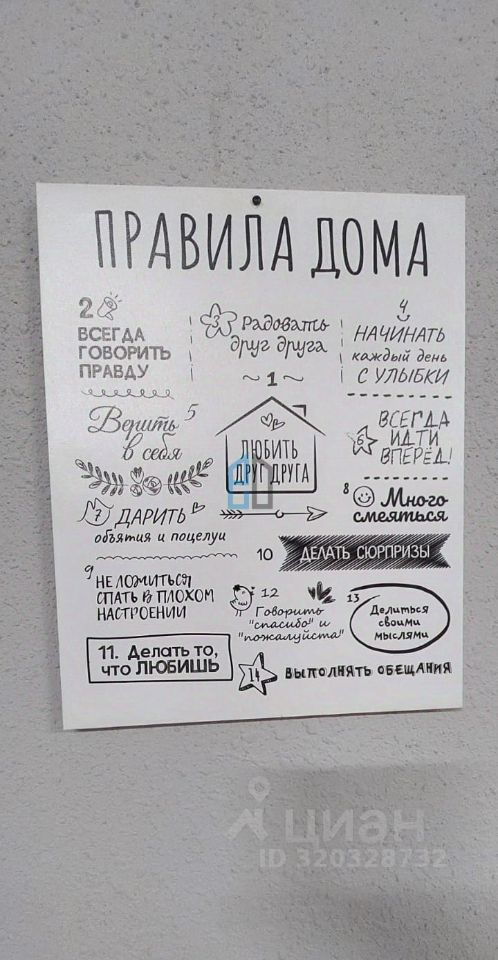 ПРАВИЛА ДОМА
2
ВСЕГДА
ГОВОРИТЬ
ПРАВДУ
3 Радовать
друг друга
4
НАЧИНАТЬ
каждый день
С УЛЫБКИ
~ 1 ~
ЛЮБИТЬ
ДРУГ ДРУГА
Верить 5
в себя
6 ВСЕГДА
ИДТИ
ВПЕРЁД!
7 ДАРИТЬ
объятия и поцелуи
8 Много
смеяться
9 НЕ ЛОЖИТЬСЯ
СПАТЬ В ПЛОХОМ
НАСТРОЕНИИ
10 ДЕЛАТЬ СЮРПРИЗЫ
12
Говорить
"спасибо" и
"пожалуйста"
13
Делиться
своими
мыслями
11. Делать то,
что ЛЮБИШЬ
14 ВЫПОЛНЯТЬ ОБЕЩАНИЯ
ЦИАН
ID 320328732